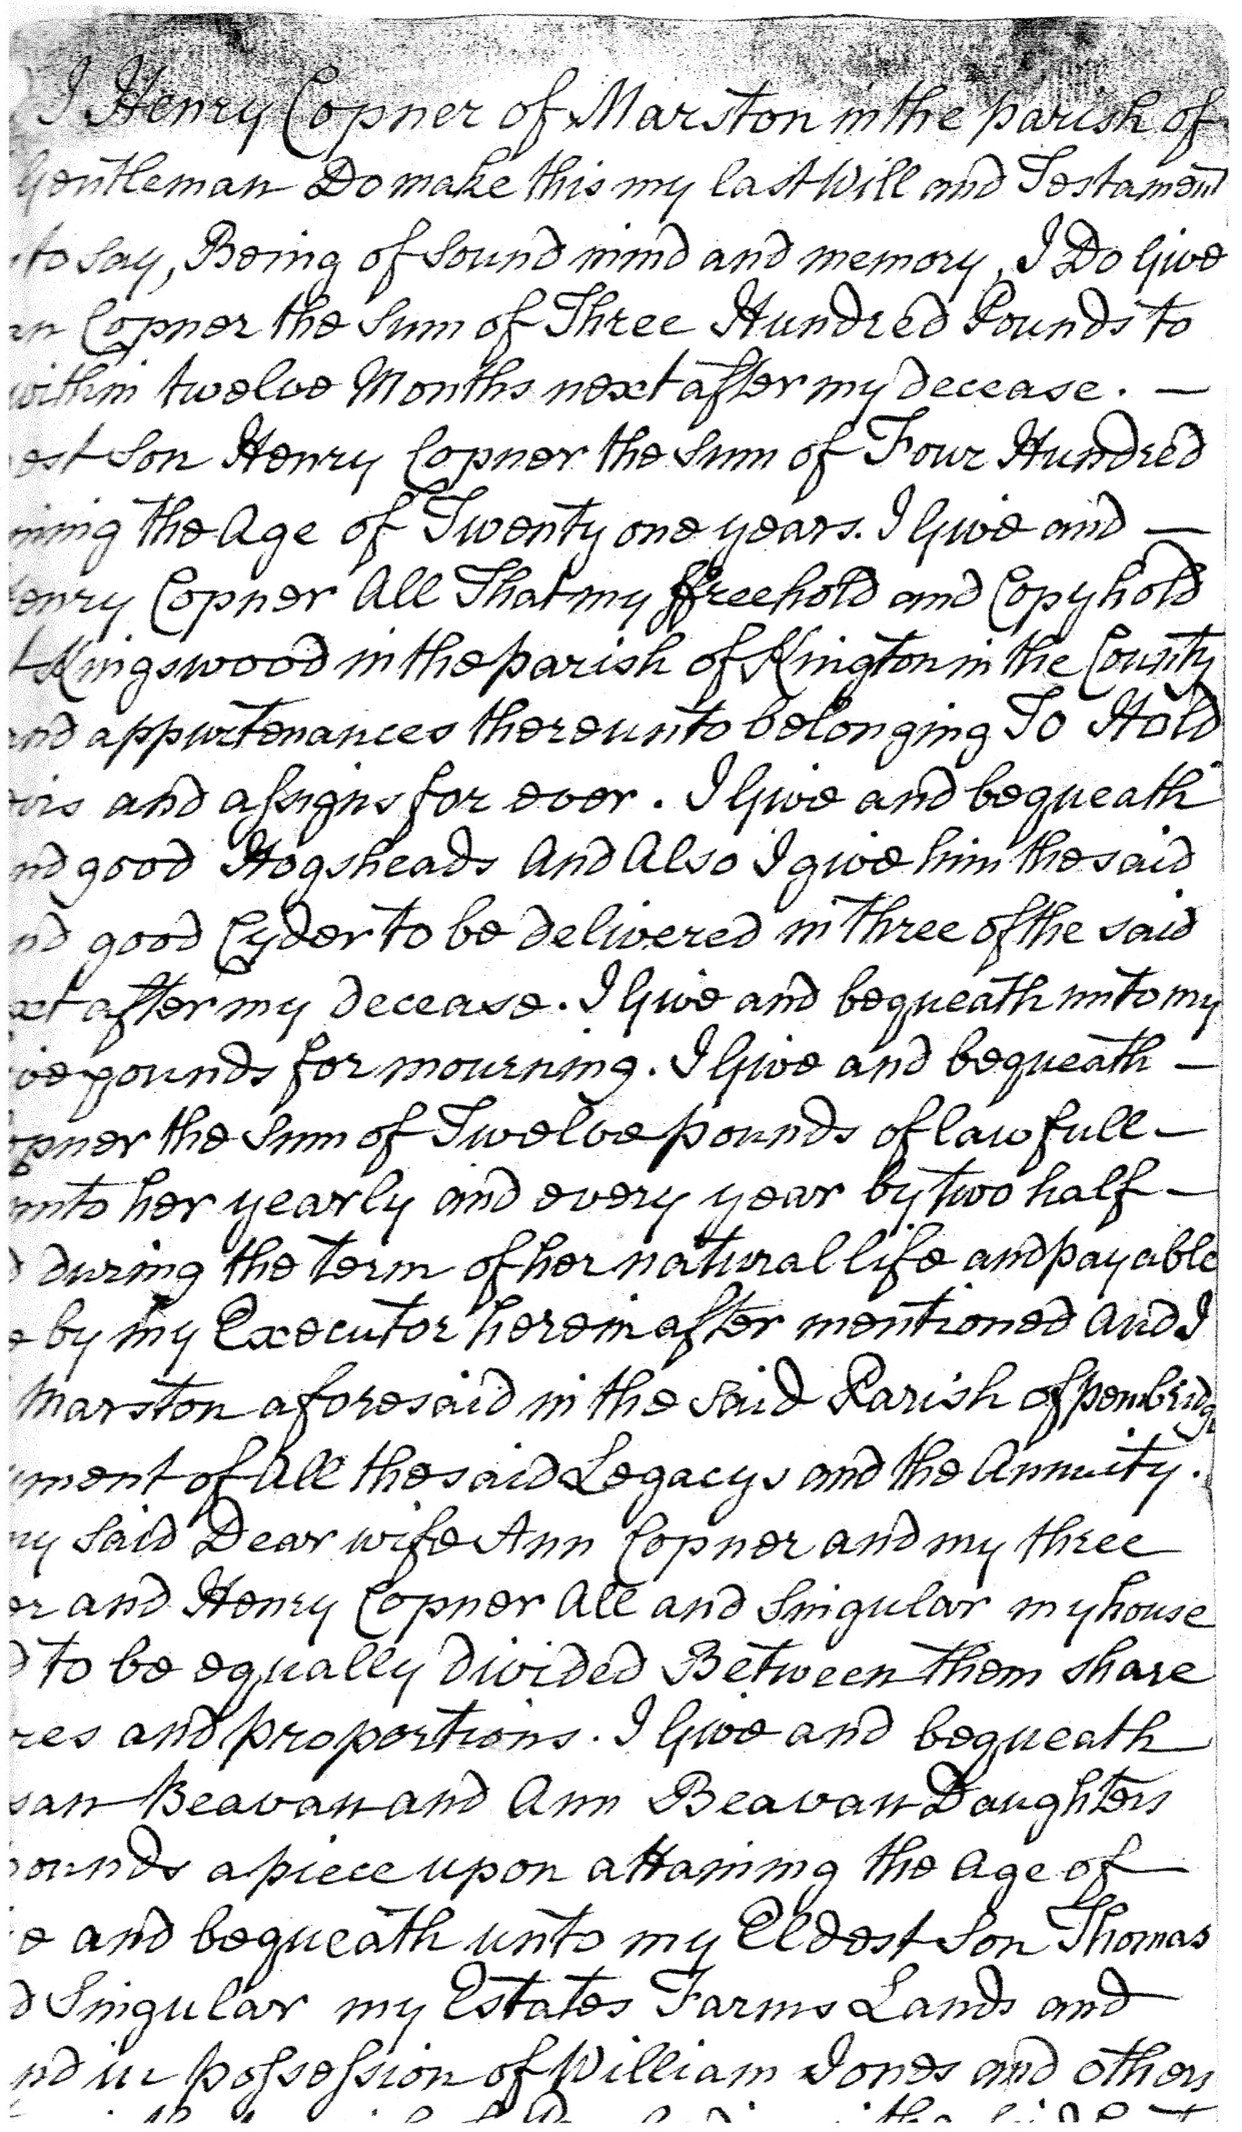 I Henry Copner of Marston in the parish of
Gentleman Do make this my last Will and Testament
to say, Being of Sound mind and memory, I Do Give
an Copner the Sum of Three Hundred Pounds to
within twelve Months next after my decease. —
est Son Henry Copner the Sum of Four Hundred
ning the Age of Twenty one years. I Give and —
enry Copner All That my ffreehold and Copyhold
t Kingswood in the parish of Kington in the County
and appurtenances thereunto belonging To Hold
eirs and assigns for ever. I Give and bequeath
nd good Hogsheads And Also I give him the said
nd good Cyder to be delivered in three of the said
xt after my decease. I Give and bequeath unto my
ive pounds for mourning. I Give and bequeath —
opner the Sum of Twelve pounds of lawfull —
unto her yearly and every year by two half —
d during the term of her natural life and payable
e by my Executor herein after mentioned And I
Marston aforesaid in the Said Parish of pembridge
yment of All the said Legacys and the Annuity.
my Said Dear wife Ann Copner and my three
er and Henry Copner All and Singular my house
d to be equally divided Between them share
res and proportions. I Give and bequeath
san Beavan and Ann Beavan Daughters
pounds a piece upon attaining the Age of
e and bequeath unto my Eldest Son Thomas
d Singular my Estates Farms Lands and
nd in possession of William Jones and others